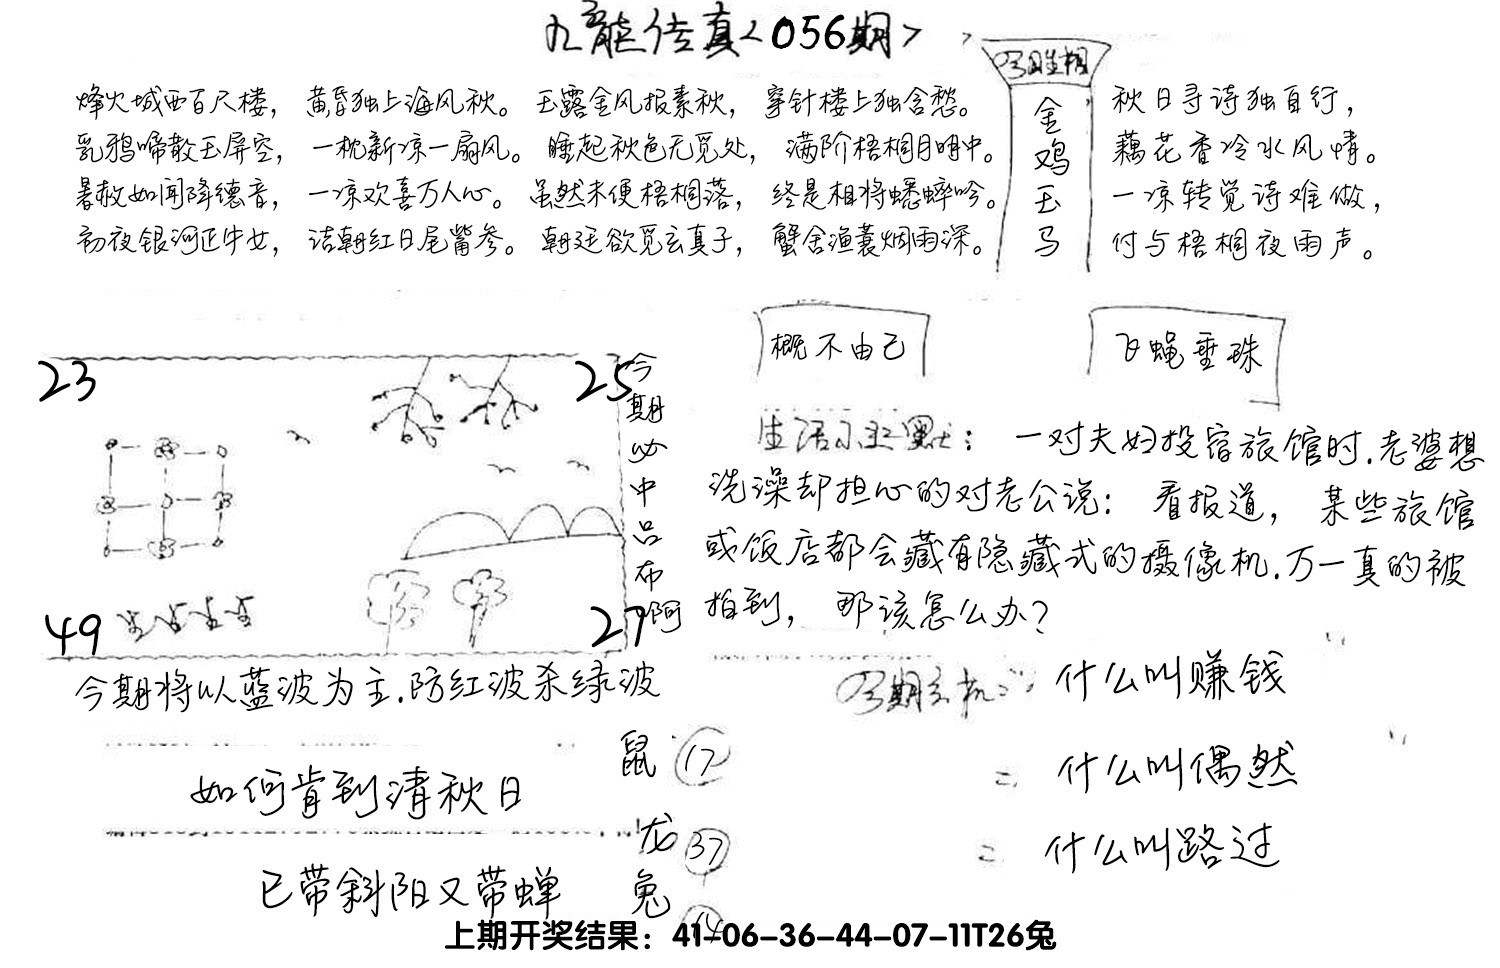 九龙传真<056期>
烽火城西百尺楼，黄昏独上海风秋。玉露金风报素秋，穿针楼上独含愁。
乳鸦啼散玉屏空，一枕新凉一扇风。睡起秋色无觅处，满阶梧桐月明中。
暑赦如闻降德音，一凉欢喜万人心。虽然未便梧桐落，终是相将蟋蟀吟。
初夜银河正牛女，诘朝红日尾觜参。朝廷欲觅玄真子，蟹舍渔蓑烟雨深。
金鸡玉马
秋日寻诗独自行，
藕花香冷水风情。
一凉转觉诗难做，
付与梧桐夜雨声。
概不由己
飞蝇垂珠
23
25
49
27
今期必中吕布啊
生活小幽默：一对夫妇投宿旅馆时.老婆想
洗澡却担心的对老公说：看报道，某些旅馆
或饭店都会藏有隐藏式的摄像机.万一真的被
拍到，那该怎么办？
今期将以蓝波为主.防红波杀绿波
今期玄机
什么叫赚钱
二 什么叫偶然
二 什么叫路过
如何肯到清秋日
已带斜阳又带蝉
鼠 17
龙 37
兔 14
上期开奖结果：41-06-36-44-07-11T26兔